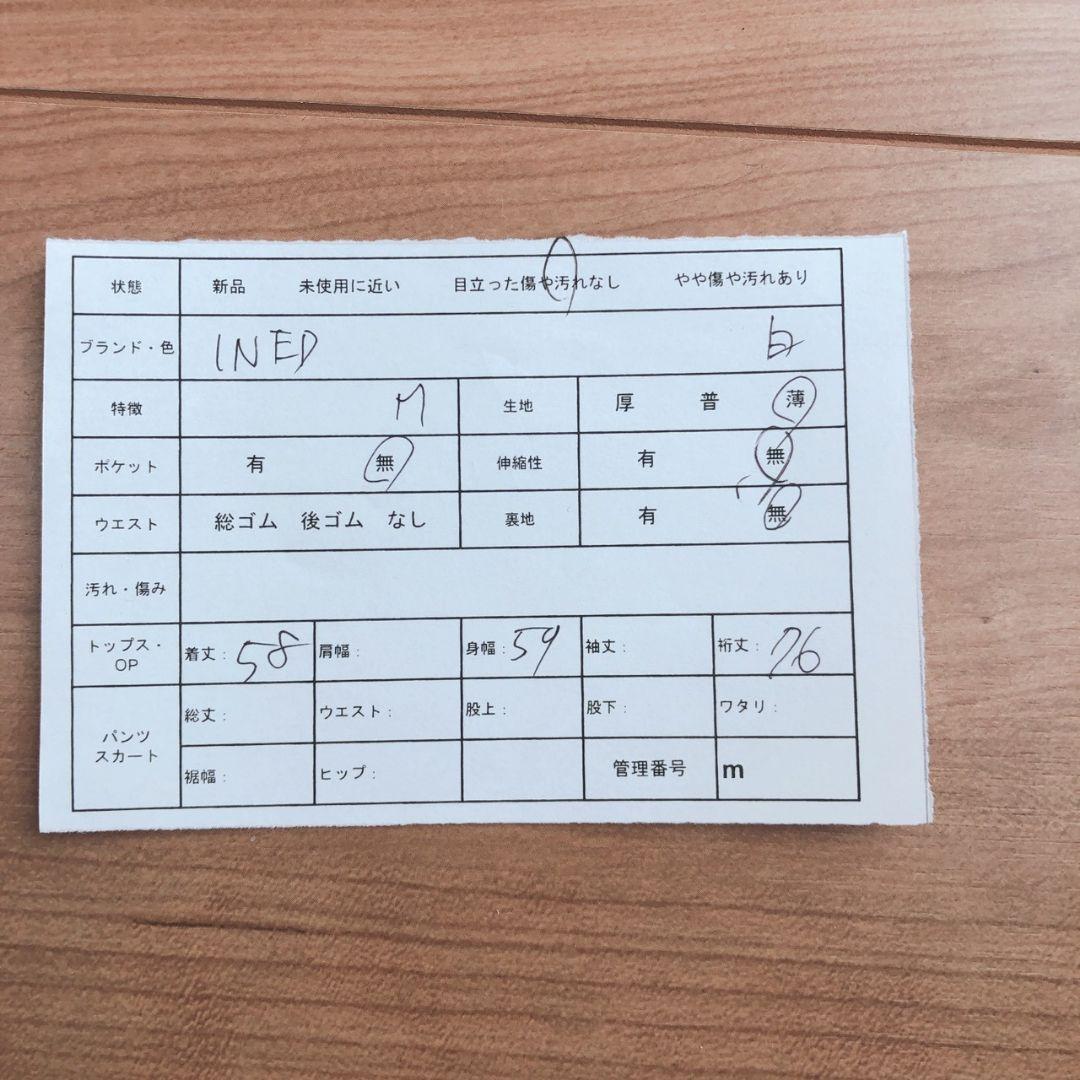 状態 新品 未使用に近い 目立った傷や汚れなし やや傷や汚れあり
ブランド・色 INED 白
特徴 M 生地 厚 普 薄
ポケット 有 無 伸縮性 有 無
ウエスト 総ゴム 後ゴム なし 裏地 有 無
汚れ・傷み
トップス・OP 着丈: 58 肩幅: 身幅: 59 袖丈: 裄丈: 76
パンツ スカート 総丈: ウエスト: 股上: 股下: ワタリ:
裾幅: ヒップ: 管理番号 m